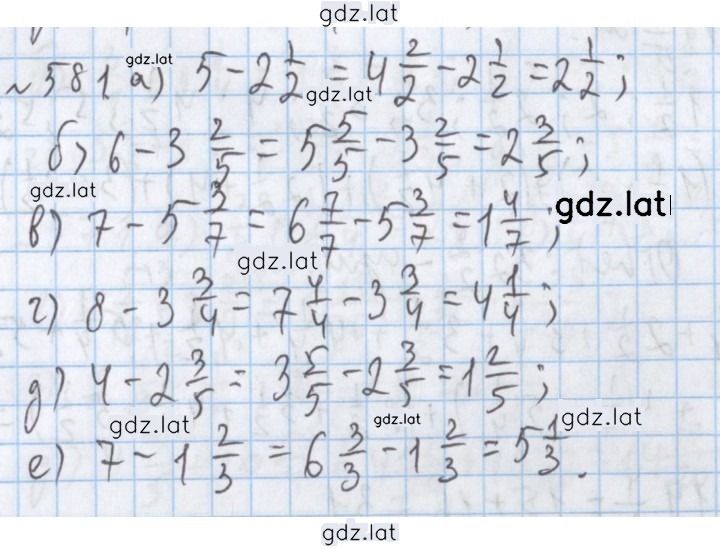 gdz.lat
№581 а) 5 - 2 1/2 = 4 2/2 - 2 1/2 = 2 1/2;
gdz.lat
gdz.lat
б) 6 - 3 2/5 = 5 5/5 - 3 2/5 = 2 3/5;
gdz.lat
gdz.lat
в) 7 - 5 3/7 = 6 7/7 - 5 3/7 = 1 4/7;
gdz.lat
г) 8 - 3 3/4 = 7 4/4 - 3 3/4 = 4 1/4;
д) 4 - 2 3/5 = 3 5/5 - 2 3/5 = 1 2/5;
gdz.lat
gdz.lat
gdz.lat
е) 7 - 1 2/3 = 6 3/3 - 1 2/3 = 5 1/3.
gdz.lat